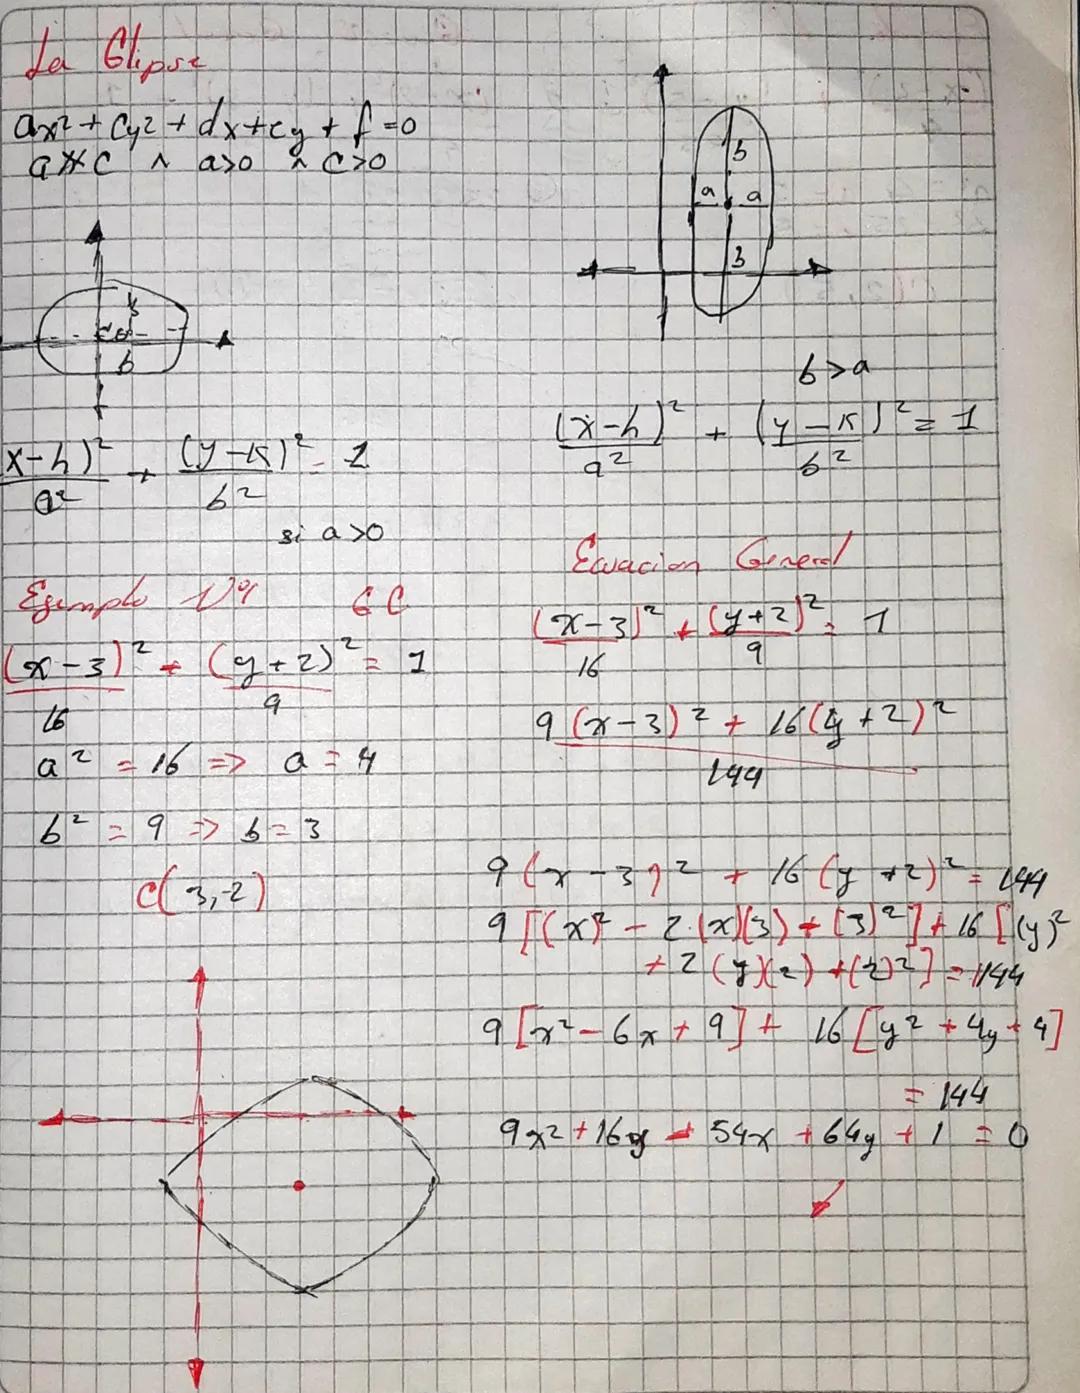 La Elipse
ax² + cy² + dx + ey + f = 0
a ≠ c ∧ a>0 ∧ c>0
b
a a
b
b
b > a
(x-h)²/a² + (y-k)²/b² = 1
si a>0
(x-h)²/a² + (y-k)²/b² = 1
Ejemplo Nº1
(x-3)²/16 + (y+2)²/9 = 1
a² = 16 => a = 4
b² = 9 => b = 3
C(3,-2)
Ecuacion General
(x-3)²/16 + (y+2)²/9 = 1
9(x-3)² + 16(y+2)²
144
9(x-3)² + 16(y+2)² = 144
9[(x)² - 2·(x)(3) + (3)²] + 16[(y)²
+ 2(y)(2) + (2)²] = 144
9[x² - 6x + 9] + 16[y² + 4y + 4]
= 144
9x² + 16y - 54x + 64y + 1 = 0